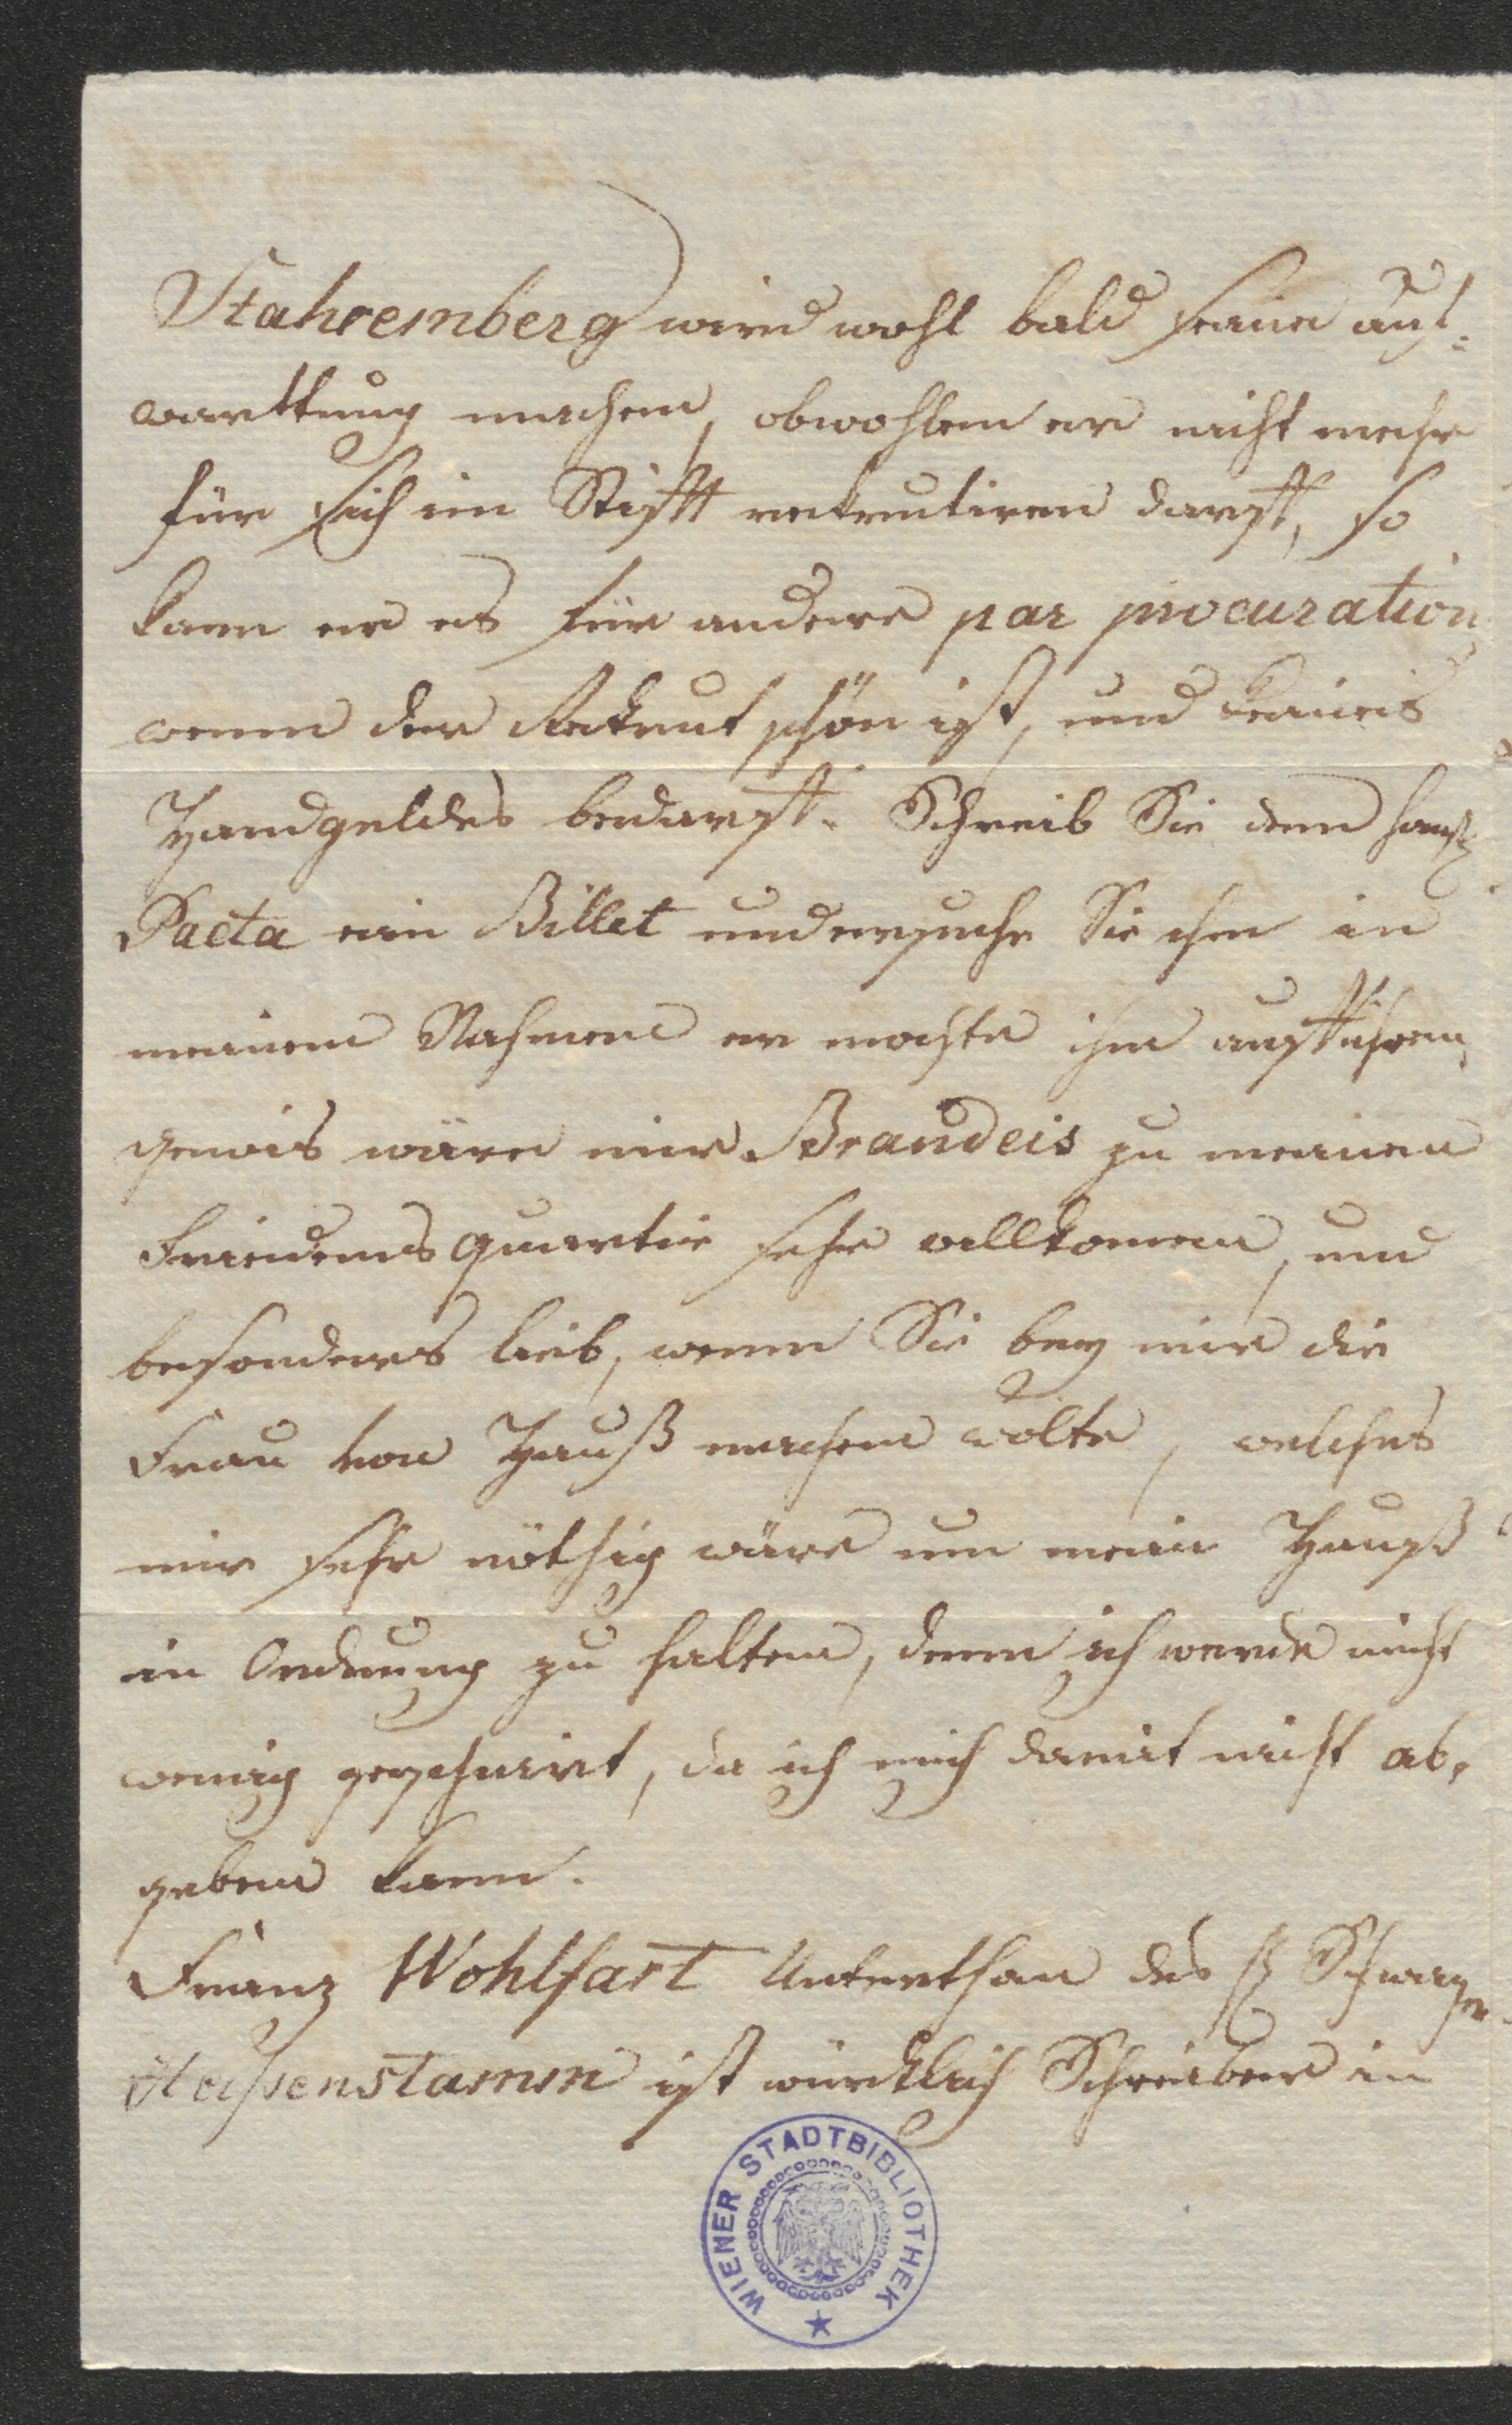 Stahremberg wird wohl bald seine auf-
warttung machen, obwohlen er nicht mehr
für sich im Stifft rekrutiren darff, so
kann er es für andere par procuration,
wenn der Rekrut schön ist, und keines
Handgeldes bedarff. Schreib Sie dem
Pacta ein Billet und ersuche Sie ihn in
meinem Nahmen er mochte ihn aufführen,
gewis wäre mir Brandeis zu meinen
Friedens quartir sehr vollkomen, und
besonders lieb, wenn Sie bey mir die
Frau von Hauß machen wolte, welches
mir sehr nöthig wäre um mein Hauß
in Ordnung zu halten, denn ich werde nicht
wenig geschnirt, da ich mich damit nicht ab-
geben kann.
Franz Wohlfart Unterthan des H Schwager
Heissenstamm ist würcklich Schreiber in
WIENER STADTBIBLIOTHEK